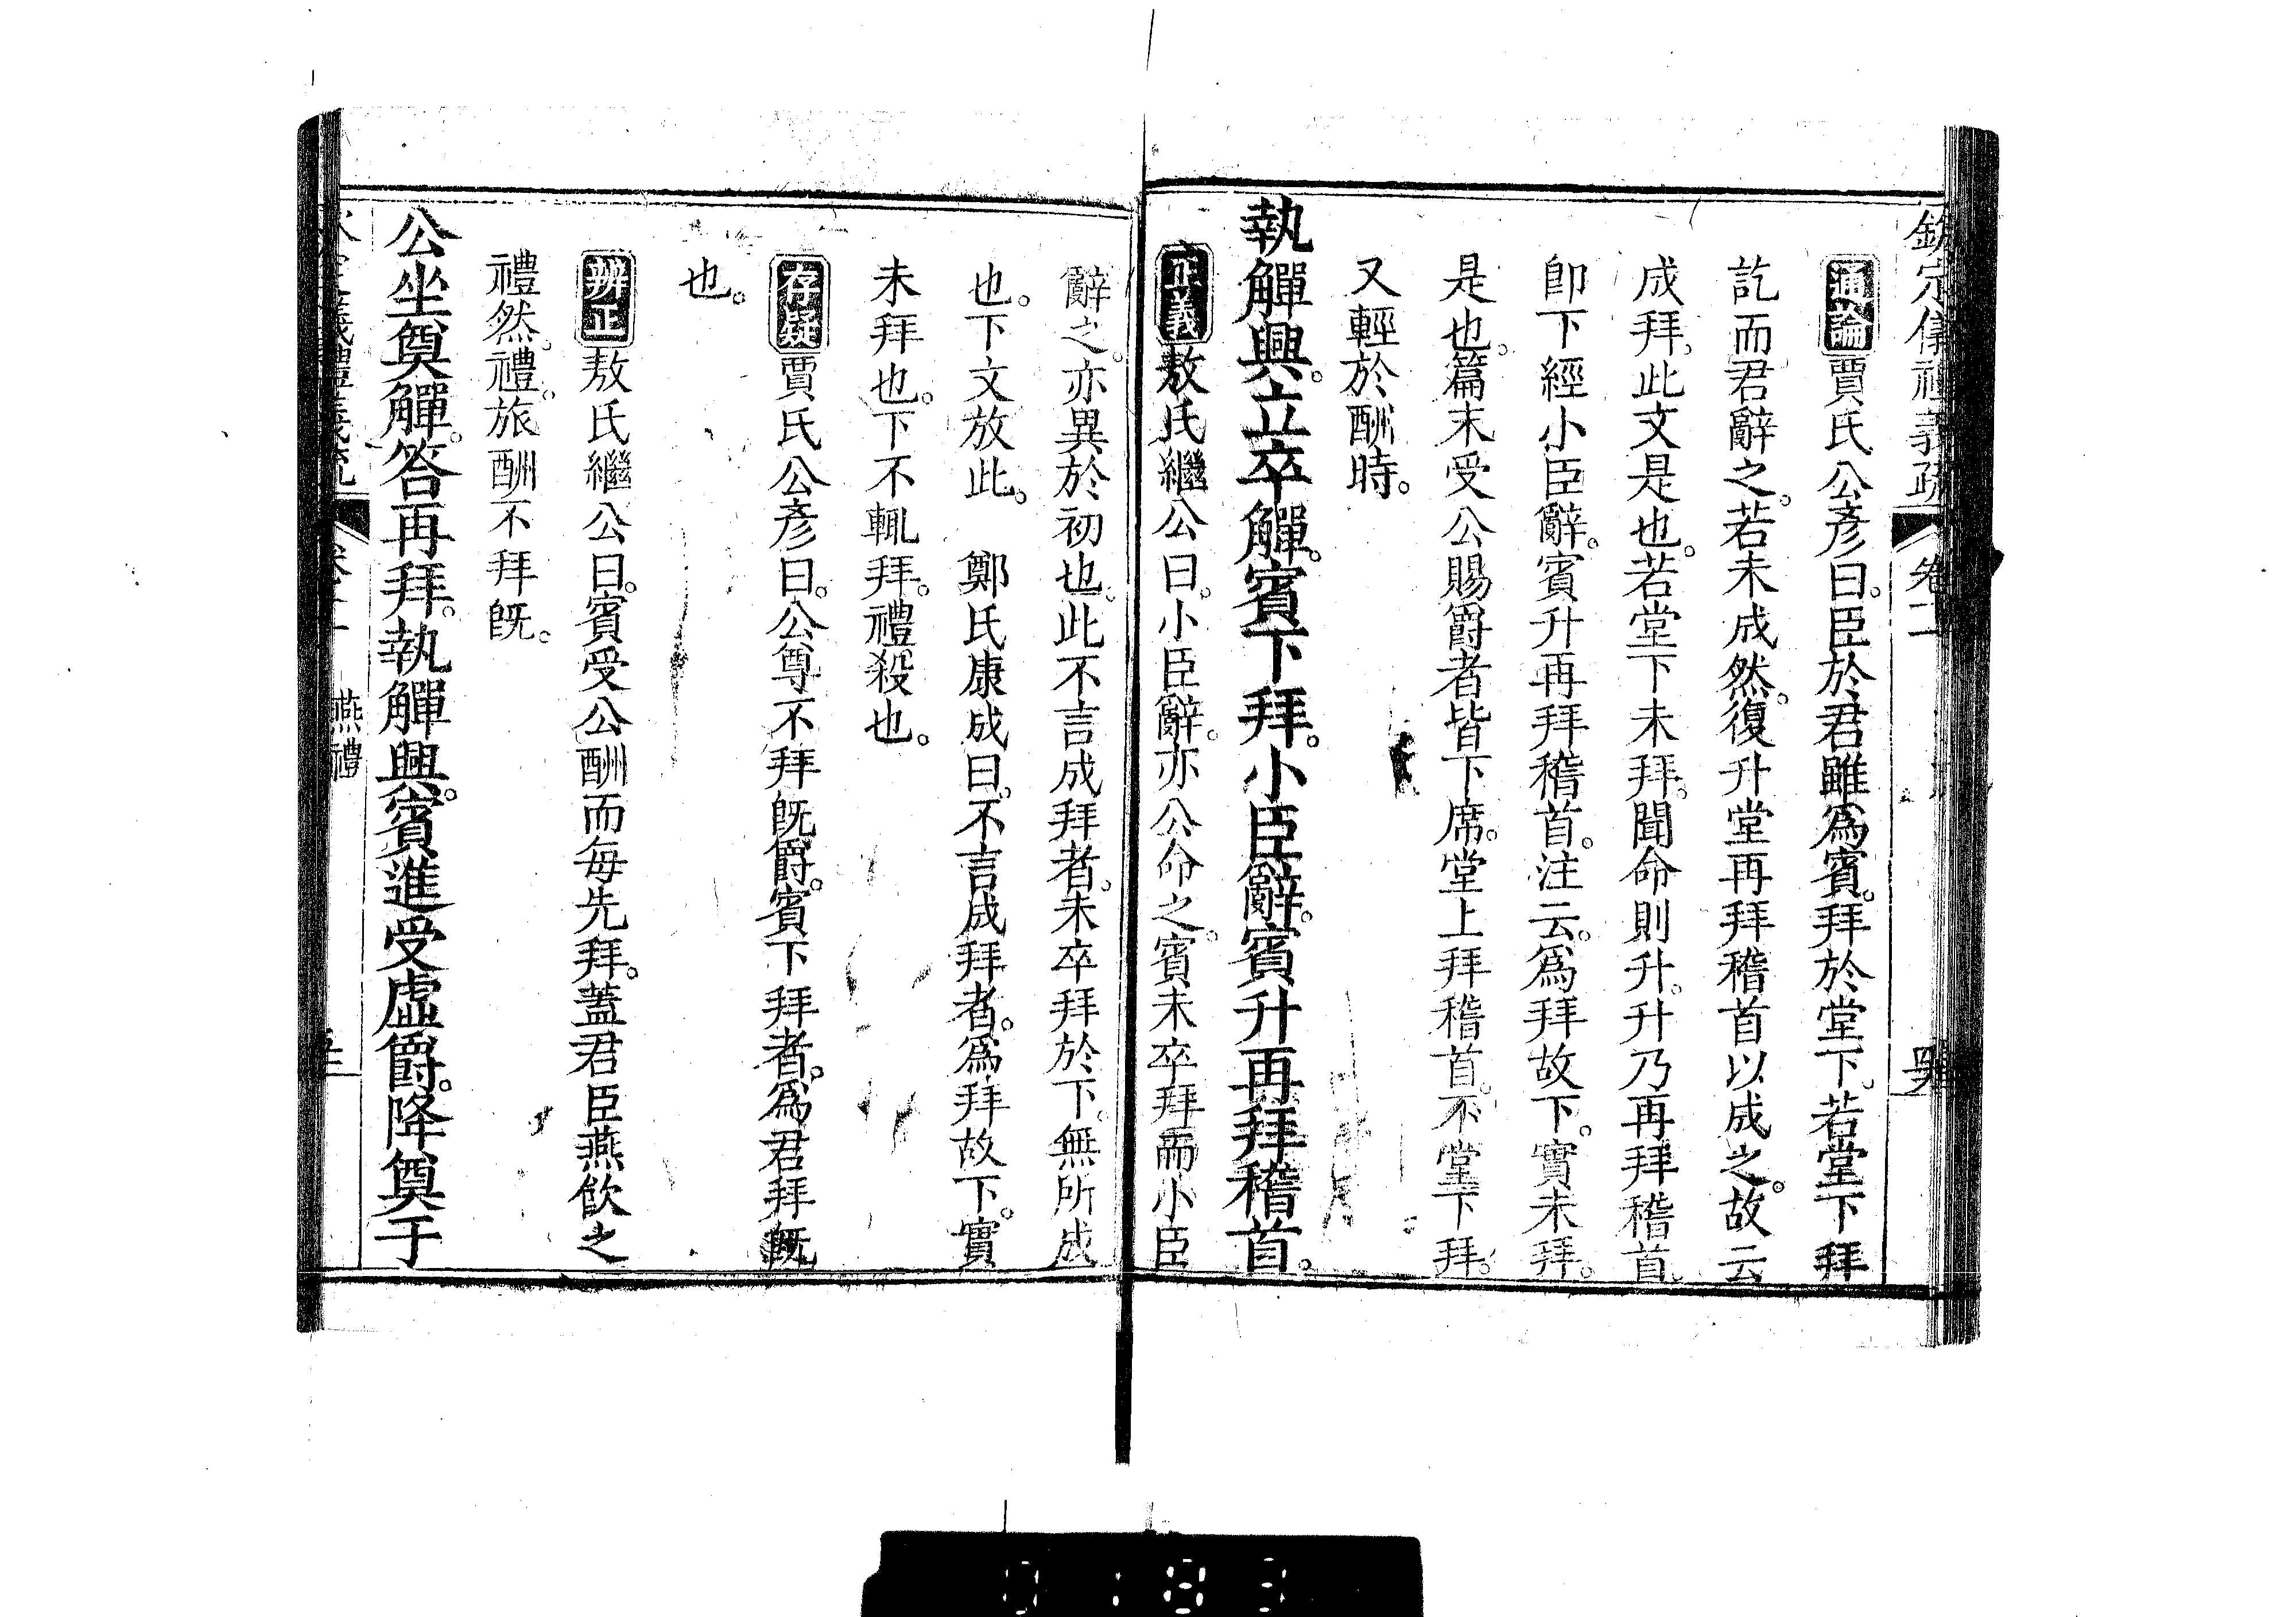 欽定儀禮義疏　卷十　　罜
通論賈氏公彥曰。臣於君雖爲賓。拜於堂下。若堂下拜
訖而君辭之。若未成然。復升堂再拜稽首以成之。故云
成拜。此文是也。若堂下未拜。聞命則升。升乃再拜稽首。
卽下經小臣辭。賓升再拜稽首。注云。爲拜故下。實未拜。
是也。篇末受公賜爵者皆下席。堂上拜稽首。不堂下拜。
又輕於酬時。
執觶興。立卒觶。賓下拜。小臣辭。賓升再拜稽首。
正義敖氏繼公曰。小臣辭。亦公命之。賓未卒拜而小臣
辭之。亦異於初也。此不言成拜者。未卒拜於下。無所成
也。下文放此。　鄭氏康成曰。不言成拜者。爲拜故下。實
未拜也。下不輒拜。禮殺也。
存疑賈氏公彥曰。公尊不拜旣爵。賓下拜者。爲君拜旣
也。
辨正敖氏繼公曰。賓受公酬而每先拜。蓋君臣燕飲之
禮然。禮。旅酬不拜旣。
公坐奠觶。答再拜。執觶興。賓進受虛爵。降奠于
燕禮